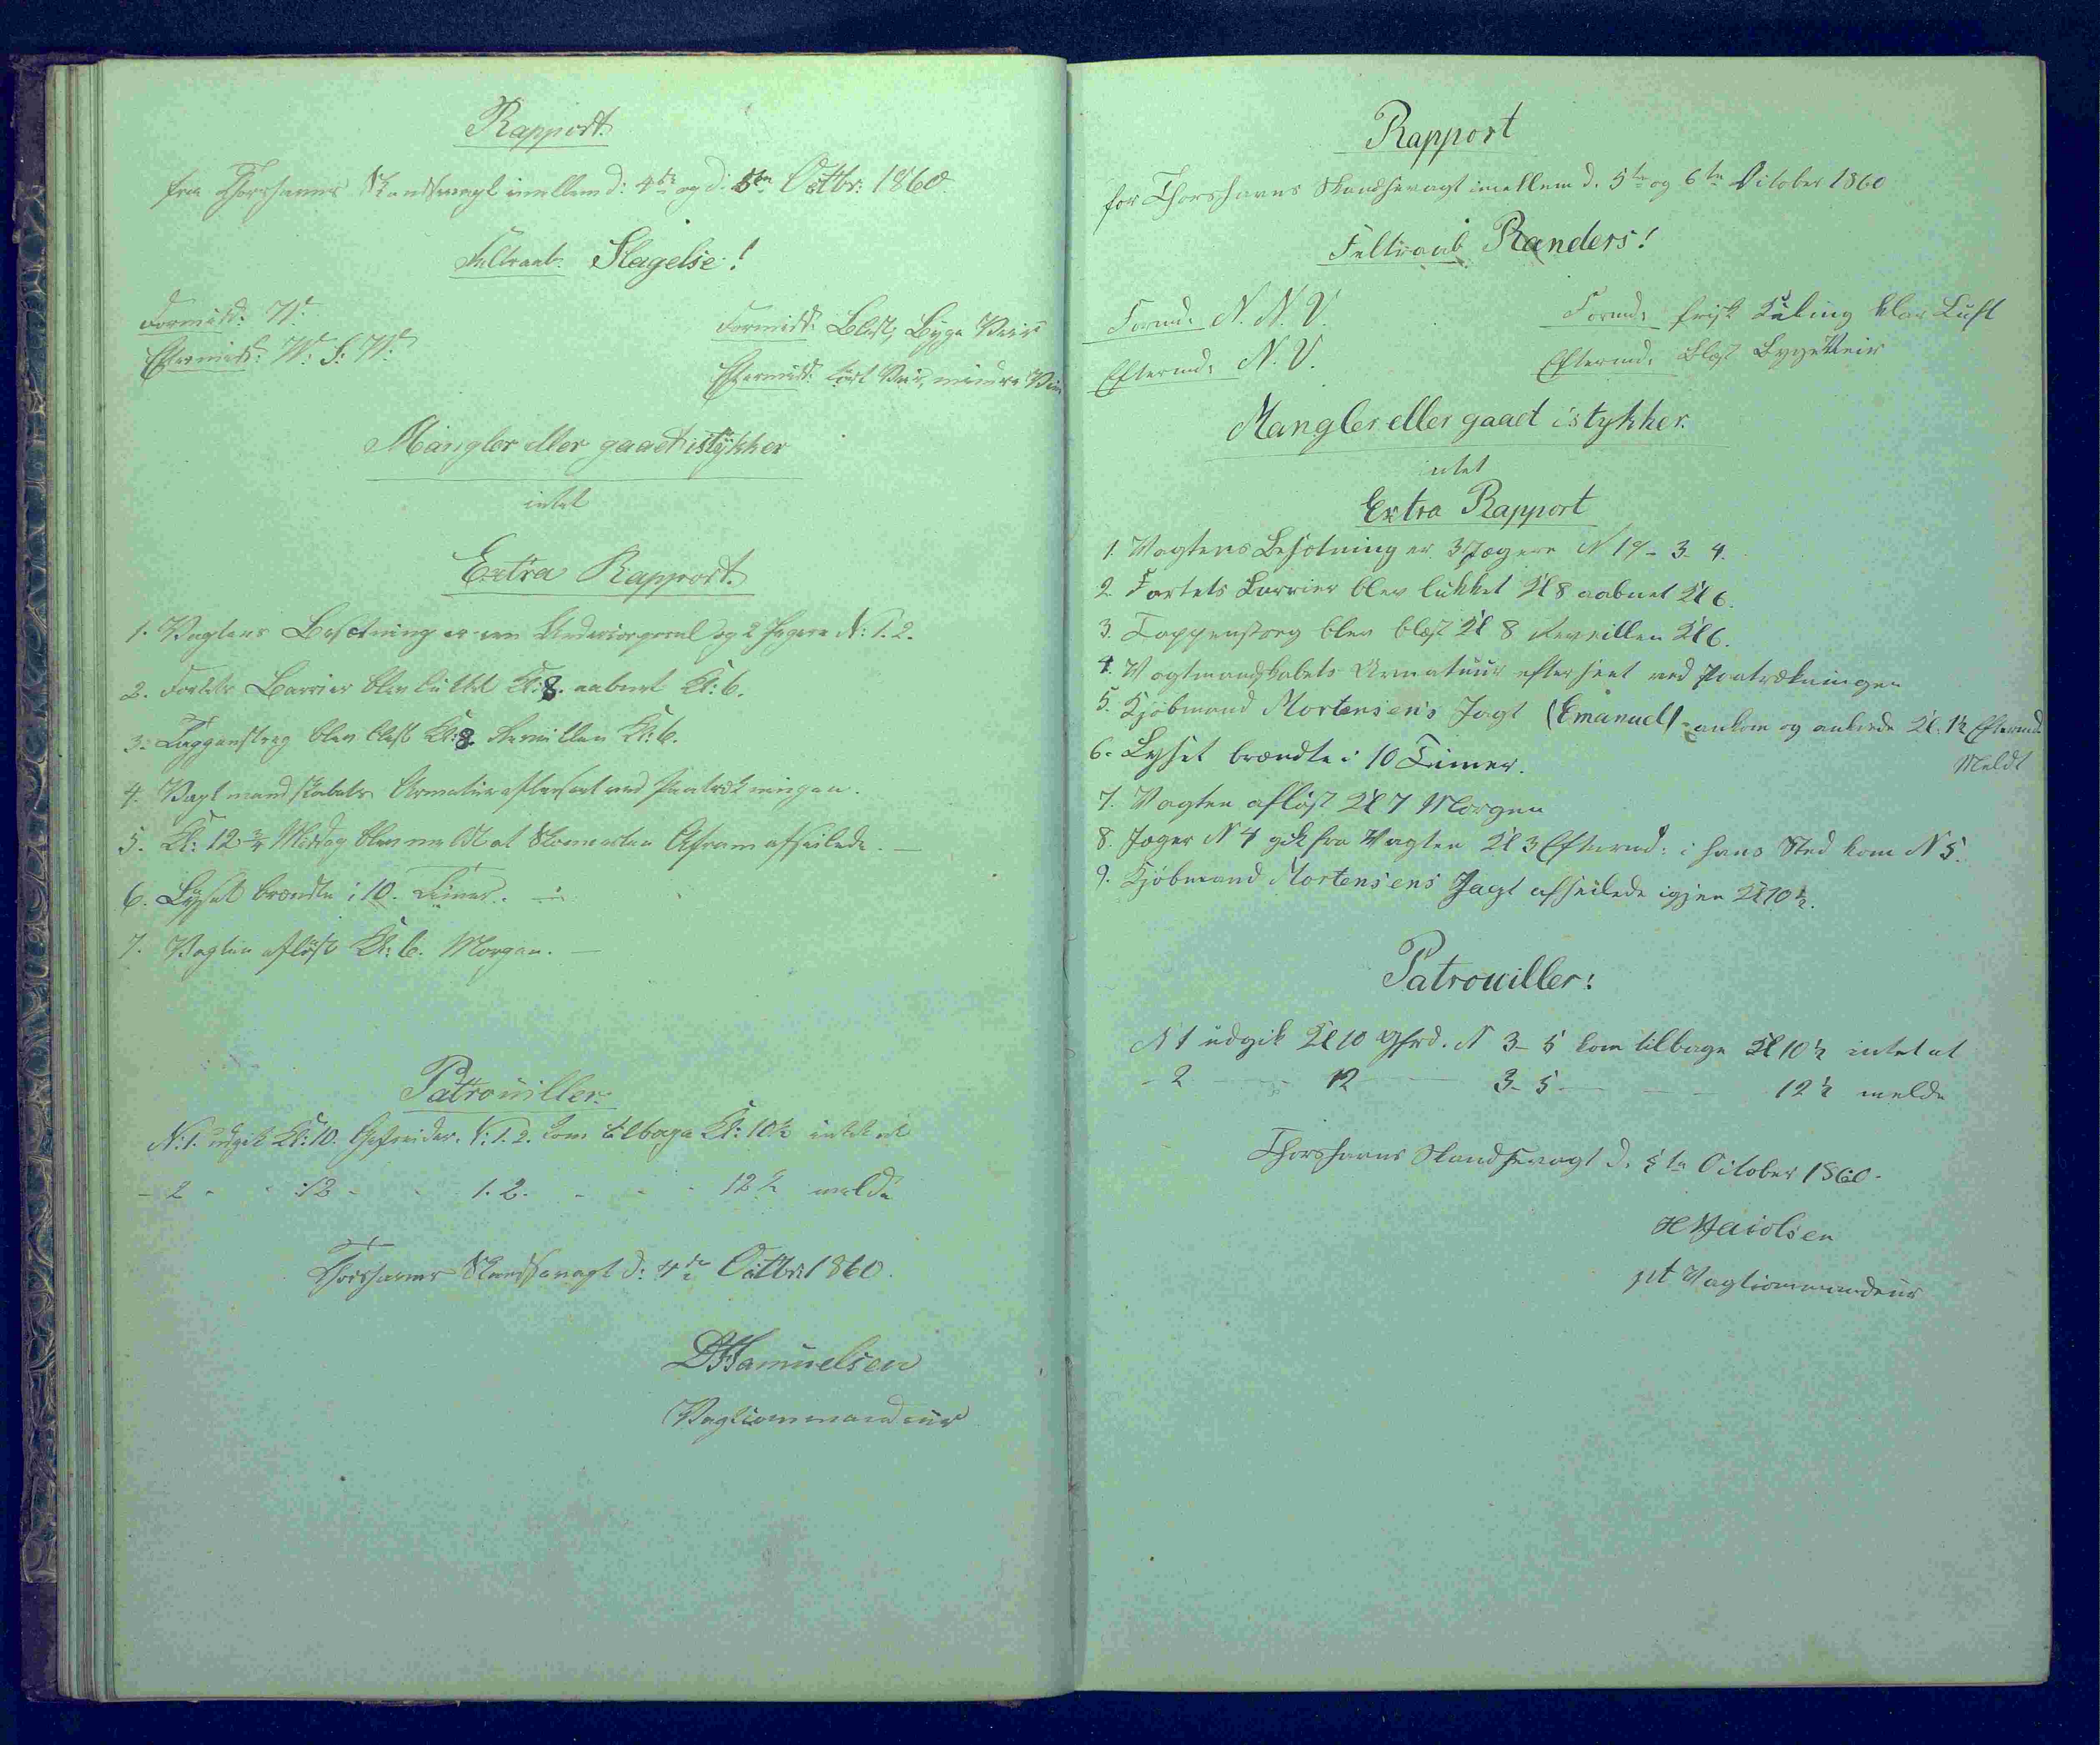 Rapport.
fra Thorshavns Skandsevagt imellem d: 4de og d: 5te Octbr: 1860.
Feltraab. Slagelse!
Formidd: W.
Eftermidd: W. S. W.
Formidd: Blæst, Byge Veir
Eftermidd: tört Veir, mindre Vin
Mangler eller gaaet istykker
intet
Extra Rapport.
1. Vagtens Besætning er een Undercorporal og 2 Jægere N: 1. 2.
2. Fortets Barrier blev lukket Kl: 8. aabnet Kl: 6.
3. Tappenstreg blev blæst Kl: 8. Reveillen Kl: 6.
4. Vagtmandskabets Armatur efterseet ved Paatrækningen.
5. Kl: 12 3/4 Middag blev meldt at Skonnerten Afram afseilede. —
6. Lyset brændte i 10. Timer. —
7. Vagten aflöst Kl: 6. Morgen. —
Patrouiller.
N: 1. udgik Kl: 10. Gefreider. N: 1. 2. kom tilbage Kl: 10½ intet at
- 2 - - 12 - - 1. 2. - - - 12½ melde
Thorshavns Skandsevagt d: 4de Octbr: 1860.
DHSamuelsen
Vagtcommandeur
Rapport
for Thorshavns Skandsevagt imellem d. 5te og 6te October 1860
Feltraab Randers!
Formd: N. N. V.
Eftermd: N. V.
Formd: frisk Kuling klar Luft
Eftermd: Blæst Bygeveir
Mangler eller gaaet istykker.
intet
Extra Rapport
1. Vagtens Besætning er 3 Jægere N 19 - 3 - 4.
2. Fortets Barrier blev lukket Kl 8 aabnet Kl 6.
3. Tappenstreg blev blæst Kl 8 Reveillen Kl 6.
4. Vagtmandskabets Armatuur efterseet ved Paatrækningen
5. Kjöbmand Mortensens Jagt (Emanuel) ankom og ankrede Kl. 1½ Eftermd
Meldt
6. Lyset brændte i 10 Timer.
7. Vagten aflöst Kl 7 Morgen
8. Jæger N 4 gik fra Vagten Kl 3 Eftermd: i hans Sted kom N 5.
9. Kjöbmand Mortensens Jagt afseilede igjen Kl 10½.
Patrouiller:
N 1 udgik Kl 10 Gfrd. N 3 - 5 kom tilbage Kl 10½ intet at
- 2 — 12 — 3 - 5 — — 12½ melde
Thorshavns Skandsevagt d. 5te October 1860.
pt Vagtcommandeur